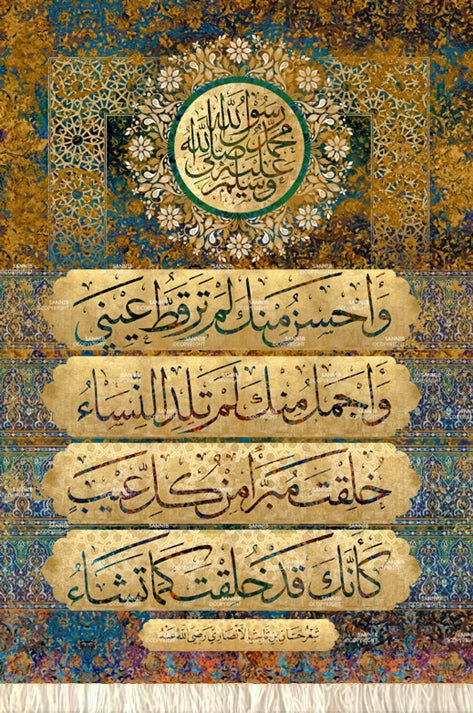 محمد رسول الله صلى الله عليه وسلم
وَأَحسَنُ مِنكَ لَم تَرَ قَطُّ عَيني
وَأَجمَلُ مِنكَ لَم تَلِدِ النِّسَاءُ
خُلِقتَ مُبَرَّأً مِن كُلِّ عَيبٍ
كَأَنَّكَ قَد خُلِقتَ كَمَا تَشَاءُ
شعر حسان بن ثابت الأنصاري رضي الله عنه
SANNIB
©COPYRIGHT